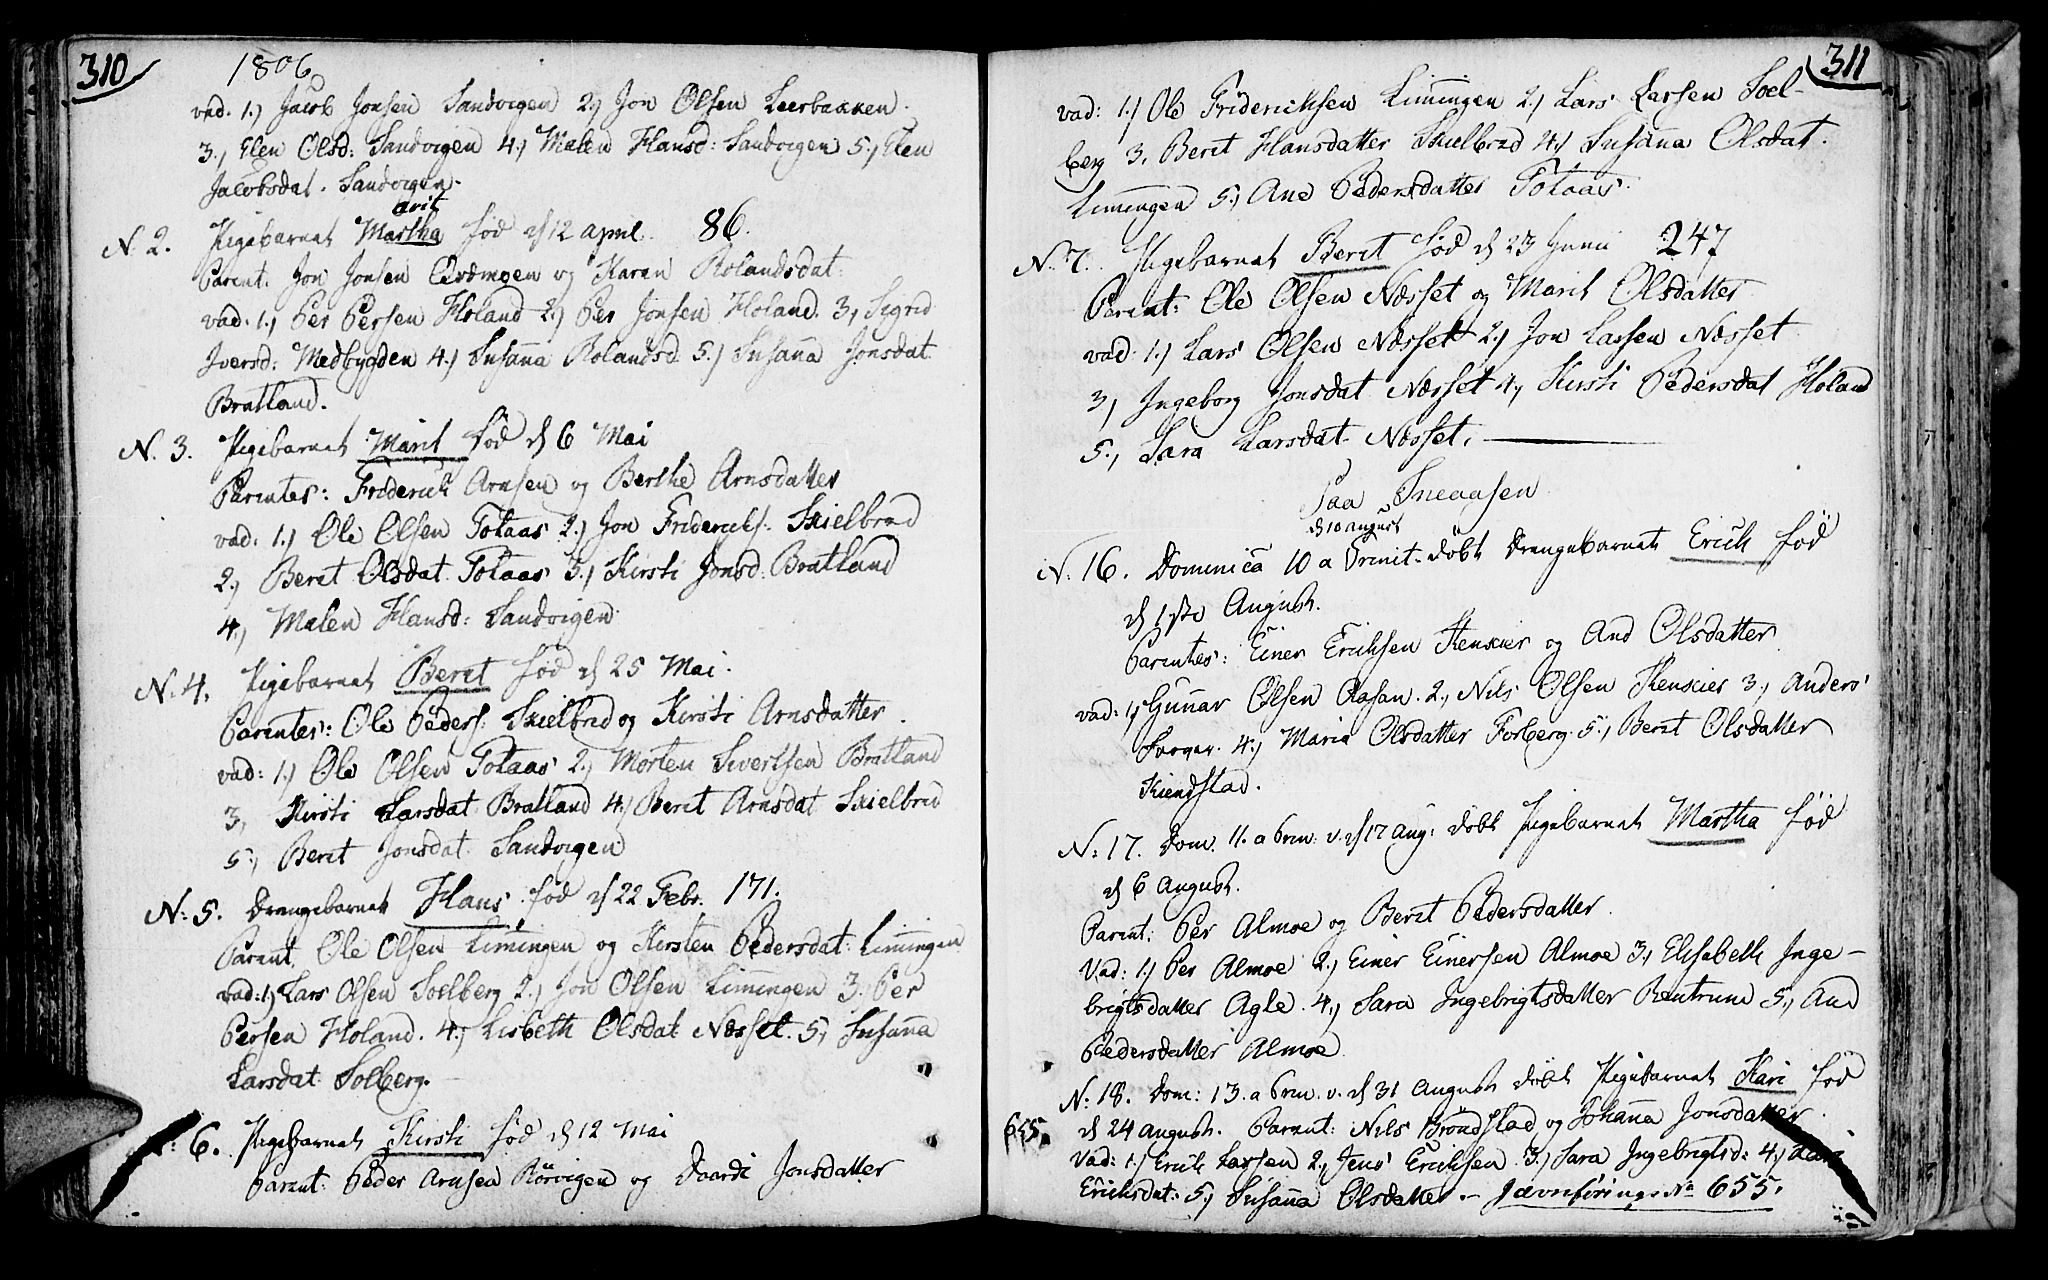 310
1806
vad. 1.) Jacob Jonsen Sandvigen 2.) Jon Olsen Leerbakken
3.) Elen Olsd: Sandvigen 4.) Malen Hansd: Sandvigen 5.) Elen
Jacobsdat. Sandvigen.
arit
N. 2. Pigebarnet Martha fød d 12 April. 86.
Parent. Jon Jonsen og Karen Rolandsdat:
vad. 1.) Per Persen Holand 2.) Per Jonsen Holand. 3, Sigrid
Iversd: Medbygden 4.) Susanna Rolandsd. 5.) Susanna Jonsdat
Bratland.
N. 3. Pigebarnet Marit fød d 6 Mai
Parentes: Friderich Arnsen og Berthe Arnsdatter
vad: 1.) Ole Olsen Totaas 2.) Jon Fridericks. Skielbred
2.) Beret Olsdat. Totaas 3.) Kirsti Jonsd: Bratland
4.) Malen Hansd: Sandvigen
N. 4. Pigebarnet Beret fød d 25 Mai.
Parentes: Ole Peders. Skielbred og Kirsti Arnsdatter.
vad: 1.) Ole Olsen Totaas 2.) Morten Sivertsen Bratland
3, Kirsti Larsdat. Bratland 4.) Beret Arnsdat Skielbred
5., Beret Jonsdat. Sandvigen
N: 5. Drengebarnet Hans fød d 22 Febr. 171.
Parent. Ole Olsen Limingen og Kirsten Pedersdat: Limingen
vad: 1.) Lars Olsen Soelberg 2.) Jon Olsen Limingen 3. Per
Persen Holand. 4., Lisbeth Olsdat Næsset. 5, Susanna
Larsdat: Solberg.
N: 6. Pigebarnet Kirsti fød d 12 Mai
Parent: Peder Arnsen Rörvigen og Daardi Jonsdatter
311
vad: 1.) Ole Fridericksen Limingen 2.) Lars Larsen Soel-
berg 3. Beret Hansdatter Skielbred 4.) Susanna Olsdat.
Limingen 5.) Ane Pedersdatter Totaas.
N. 7. Pigebarnet Beret fød d 23 Junii 247
Parent: Ole Olsen Næsset og Marit Olsdatter
vad: 1.) Lars Olsen Næsset 2.) Jon Larsen Næsset
3, Ingeborg Jonsdat Næsset 4., Kirsti Pedersdat Holand
5., Sara Larsdat Næsset.
Paa Sneaasen
d 10 August
N. 16. Dominica 10 a Trinit. døbt Drengebarnet Erich fød
d 1ste August.
Parentes: Einer Erichsen Kenskier og And Olsdatter
vad: 1, Gunnar Olsen Aasan. 2., Nils Olsen Kenskier 3., Anders
4.) Maria Olsdatter Forberg. 5., Beret Olsdatter
Kiendstad.
N: 17. Dom. 11. a Trin. v. d 17 Aug: døbt Pigebarnet Martha fød
d 6 August.
Parent: Per Almoe og Beret Pedersdatter.
Vad: 1.) Per Almoe 2.) Einer Einersen Almoe 3., Elisabeth Inge-
brigtsdatter Agle. 4.) Sara Ingebrigtsdatter 5., And
Pedersdatter Almoe.
N: 18. Dom: 13. a Trin. v. d 31 August døbt Pigebarnet Kari fød
655. d 24 August. Parent: Nils Bröndstad og Johanna Jonsdatter.
Vad: 1.) Erich Larsen 2., Jens Erichsen 3.) Sara Ingebrigtsd: 4.) Kari
Erichsdat: 5.) Susanna Olsdatter. - Jævnførings No 655.